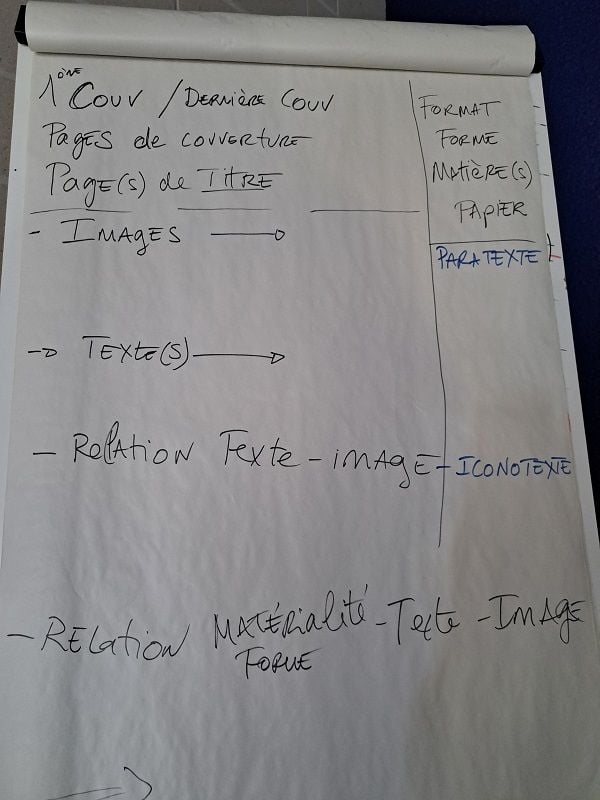 1ère Couv / Dernière Couv
Pages de couverture
Page(s) de Titre
- Images →
→ Texte(s) →
- Relation Texte - image - ICONOTEXTE
- Relation MATÉRIALITÉ - Texte - Image
FORME
FORMAT
FORME
Matière(s)
PAPIER
PARATEXTE